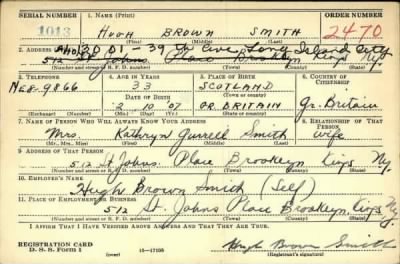 SERIAL NUMBER 1. NAME (Print) ORDER NUMBER
1013 HUGH BROWN SMITH 2470
(First) (Middle) (Last)
2. ADDRESS (Print) 3001 - 39 th Ave Long Island City
512 St. Johns Place Brooklyn Kings Ny.
(Number and street or R. F. D. number) (Town) (County) (State)
3. TELEPHONE 4. AGE IN YEARS 5. PLACE OF BIRTH 6. COUNTRY OF CITIZENSHIP
33 SCOTLAND
NE8-9866 DATE OF BIRTH (Town or county)
2 10 '07 GR. BRITAIN Gr. Britain
(Exchange) (Number) (Mo.) (Day) (Yr.) (State or country)
7. NAME OF PERSON WHO WILL ALWAYS KNOW YOUR ADDRESS 8. RELATIONSHIP OF THAT PERSON
Mrs. Kathryn Gurrell Smith wife
(Mr., Mrs., Miss) (First) (Middle) (Last)
9. ADDRESS OF THAT PERSON
512 St. Johns Place Brooklyn Kings Ny.
(Number and street or R. F. D. number) (Town) (County) (State)
10. EMPLOYER'S NAME
Hugh Brown Smith (Self)
11. PLACE OF EMPLOYMENT OR BUSINESS
512 St. Johns Place Brooklyn, Kings Ny.
(Number and street or R. F. D. number) (Town) (County) (State)
I AFFIRM THAT I HAVE VERIFIED ABOVE ANSWERS AND THAT THEY ARE TRUE.
REGISTRATION CARD
D. S. S. Form 1 (over) Hugh Brown Smith
(Registrant's signature)